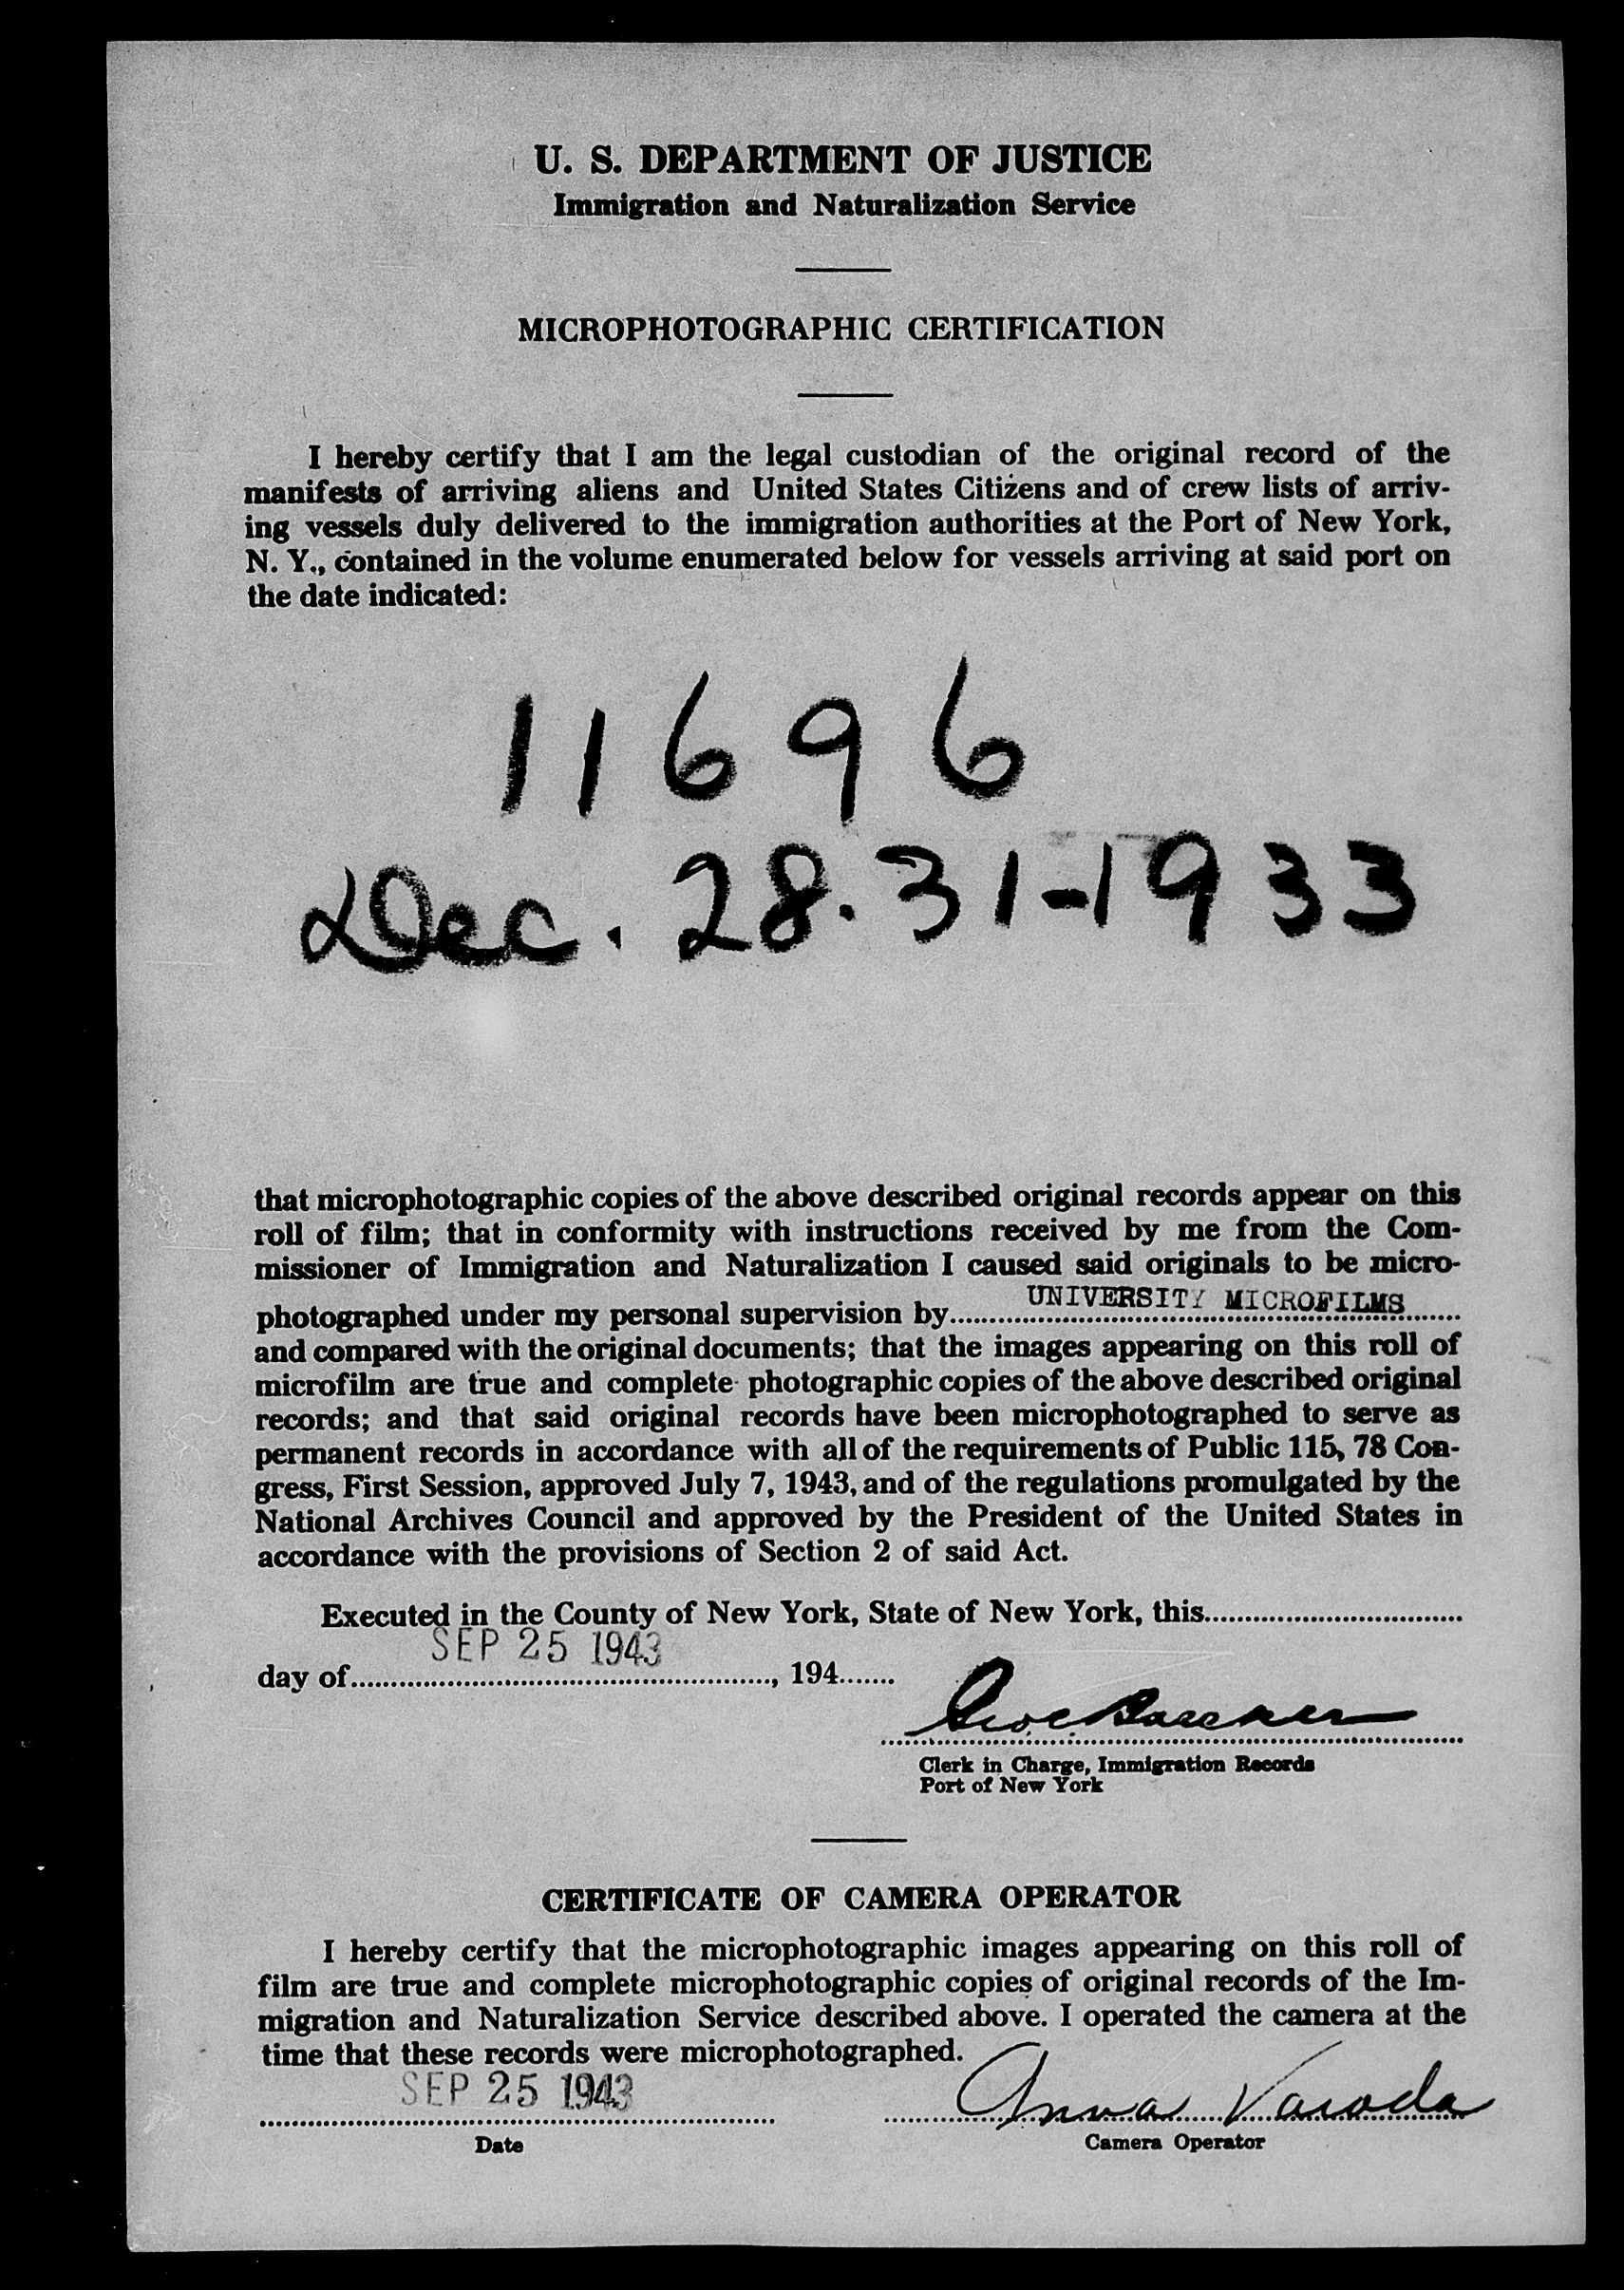 U. S. DEPARTMENT OF JUSTICE
Immigration and Naturalization Service
MICROPHOTOGRAPHIC CERTIFICATION
I hereby certify that I am the legal custodian of the original record of the
manifests of arriving aliens and United States Citizens and of crew lists of arriv-
ing vessels duly delivered to the immigration authorities at the Port of New York,
N. Y., contained in the volume enumerated below for vessels arriving at said port on
the date indicated:
11696
Dec. 28.31-1933
that microphotographic copies of the above described original records appear on this
roll of film; that in conformity with instructions received by me from the Com-
missioner of Immigration and Naturalization I caused said originals to be micro-
photographed under my personal supervision by UNIVERSITY MICROFILMS
and compared with the original documents; that the images appearing on this roll of
microfilm are true and complete photographic copies of the above described original
records; and that said original records have been microphotographed to serve as
permanent records in accordance with all of the requirements of Public 115, 78 Con-
gress, First Session, approved July 7, 1943, and of the regulations promulgated by the
National Archives Council and approved by the President of the United States in
accordance with the provisions of Section 2 of said Act.
Executed in the County of New York, State of New York, this
SEP 25 1943
day of , 194
Clerk in Charge, Immigration Records
Port of New York
CERTIFICATE OF CAMERA OPERATOR
I hereby certify that the microphotographic images appearing on this roll of
film are true and complete microphotographic copies of original records of the Im-
migration and Naturalization Service described above. I operated the camera at the
time that these records were microphotographed.
SEP 25 1943 Anna
Date Camera Operator